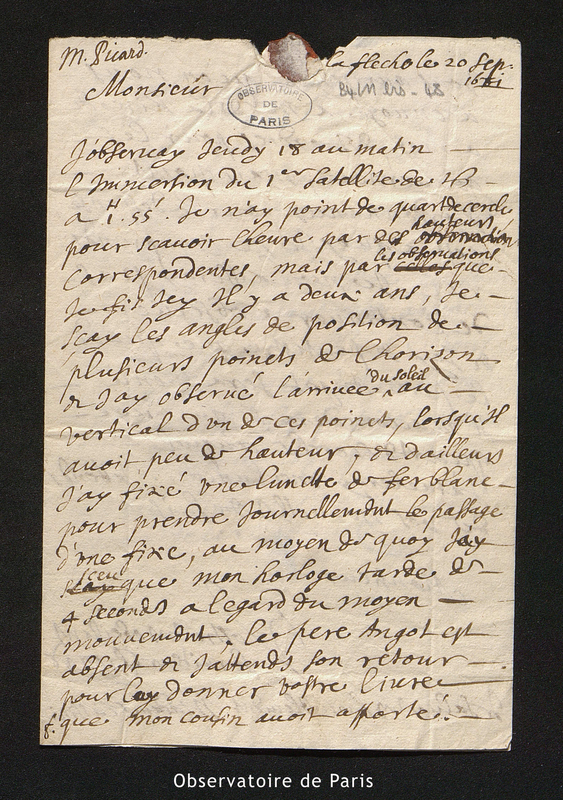 M. Picard.
la fleche le 20 Sep.
Monsieur
OBSERVATOIRE
DE
PARIS
J'observay Jeudy 18 au matin
l'Immersion du 1er Satellite de ♃
a 1.H 55'. Je n'ay point de quart de cercle
pour scavoir l'heure par des hauteurs
Correspondentes, mais par les observations que
Je fis Icy Il y a deux ans, Je
scay les angles de position de
plusieurs points de l'horison
& J'ay observé l'arrivée du soleil au
vertical d'un de ces points, lorsqu'Il
avoit peu de hauteur, & d'ailleurs
J'ay fixé une lunette de fer blanc
pour prendre Journellement le passage
d'une fixe, au moyen de quoy J'ay
sceu que mon horloge tarde de
4 seconds a legard du moyen
mouvement. le pere Angot est
absent & J'attends son retour
pour luy donner vostre livre
que mon cousin avoit apporté.
Observatoire de Paris